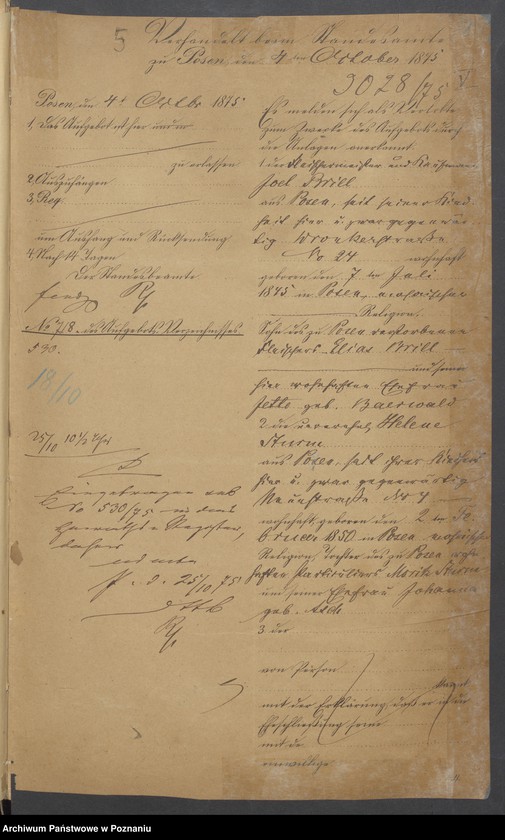 5
Verhandelt beim Standesamte
zu Posen, den 4ten October 1875
3028/75
Posen, den 4t Octbr 1875
1, Das Aufgebot ist hier und in
zu erlassen
2, Auszuhängen
3, Reg.
um Aushang und Rücksendung
4, Nach 14 Tagen
Der Standesbeamte
No 718. des Aufgebots-Verzeichnisses
530.
18/10
25/10 10 1/2 Uhr
Eingetragen sub
No 530/75 in dem
Register,
P. d. 25/10 75
Es melden sich als Verlobte
zum Zwecke des Aufgebots durch
die Anlagen anerkannt:
1 der Fleischermeister und Kaufmann
Joel Brill
aus Posen, seit seiner Kind-
heit hier u. zwar gegenwär-
tig Wronkerstraße
No 24 wohnhaft
geboren den 7ten Juli
1845 in Posen, mosaischer
Religion,
Sohn des zu Posen verstorbenen
Fleischers Elias Brill
und seiner
hier wohnhaften Ehefrau
Jette geb. Baerwald
2 die Helene
Sturm
aus Posen, seit ihrer Kindheit
hier u. zwar gegenwärtig
No 4
wohnhaft, geboren den 2ten Fe-
bruar 1850 in Posen mosaischer
Religion, Tochter des zu Posen wohn-
haften Partikuliers Moritz Sturm
und seiner Ehefrau Johanna
geb. Asch
3 der
von Person
mit der Erklärung, daß er in die
Eheschließung seine
mit de
einwillige